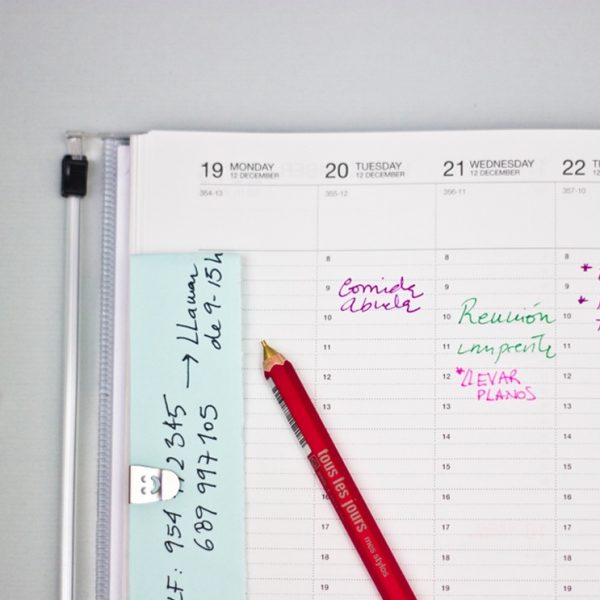 19 MONDAY
12 DECEMBER
354-13
20 TUESDAY
12 DECEMBER
355-12
21 WEDNESDAY
12 DECEMBER
356-11
22
12 DECEMBER
357-10
8
9
10
11
12
13
14
15
16
17
18
19
Comida
Abuela
8
9
10
11
12
13
14
15
16
17
18
19
Reunión
imprenta
*LLEVAR
PLANOS
8
9
10
11
12
13
14
15
16
17
18
19
*
*
→ Llamar
de 9-15h
LF: 954 112345
689 997 105
tous les jours
mes stylos